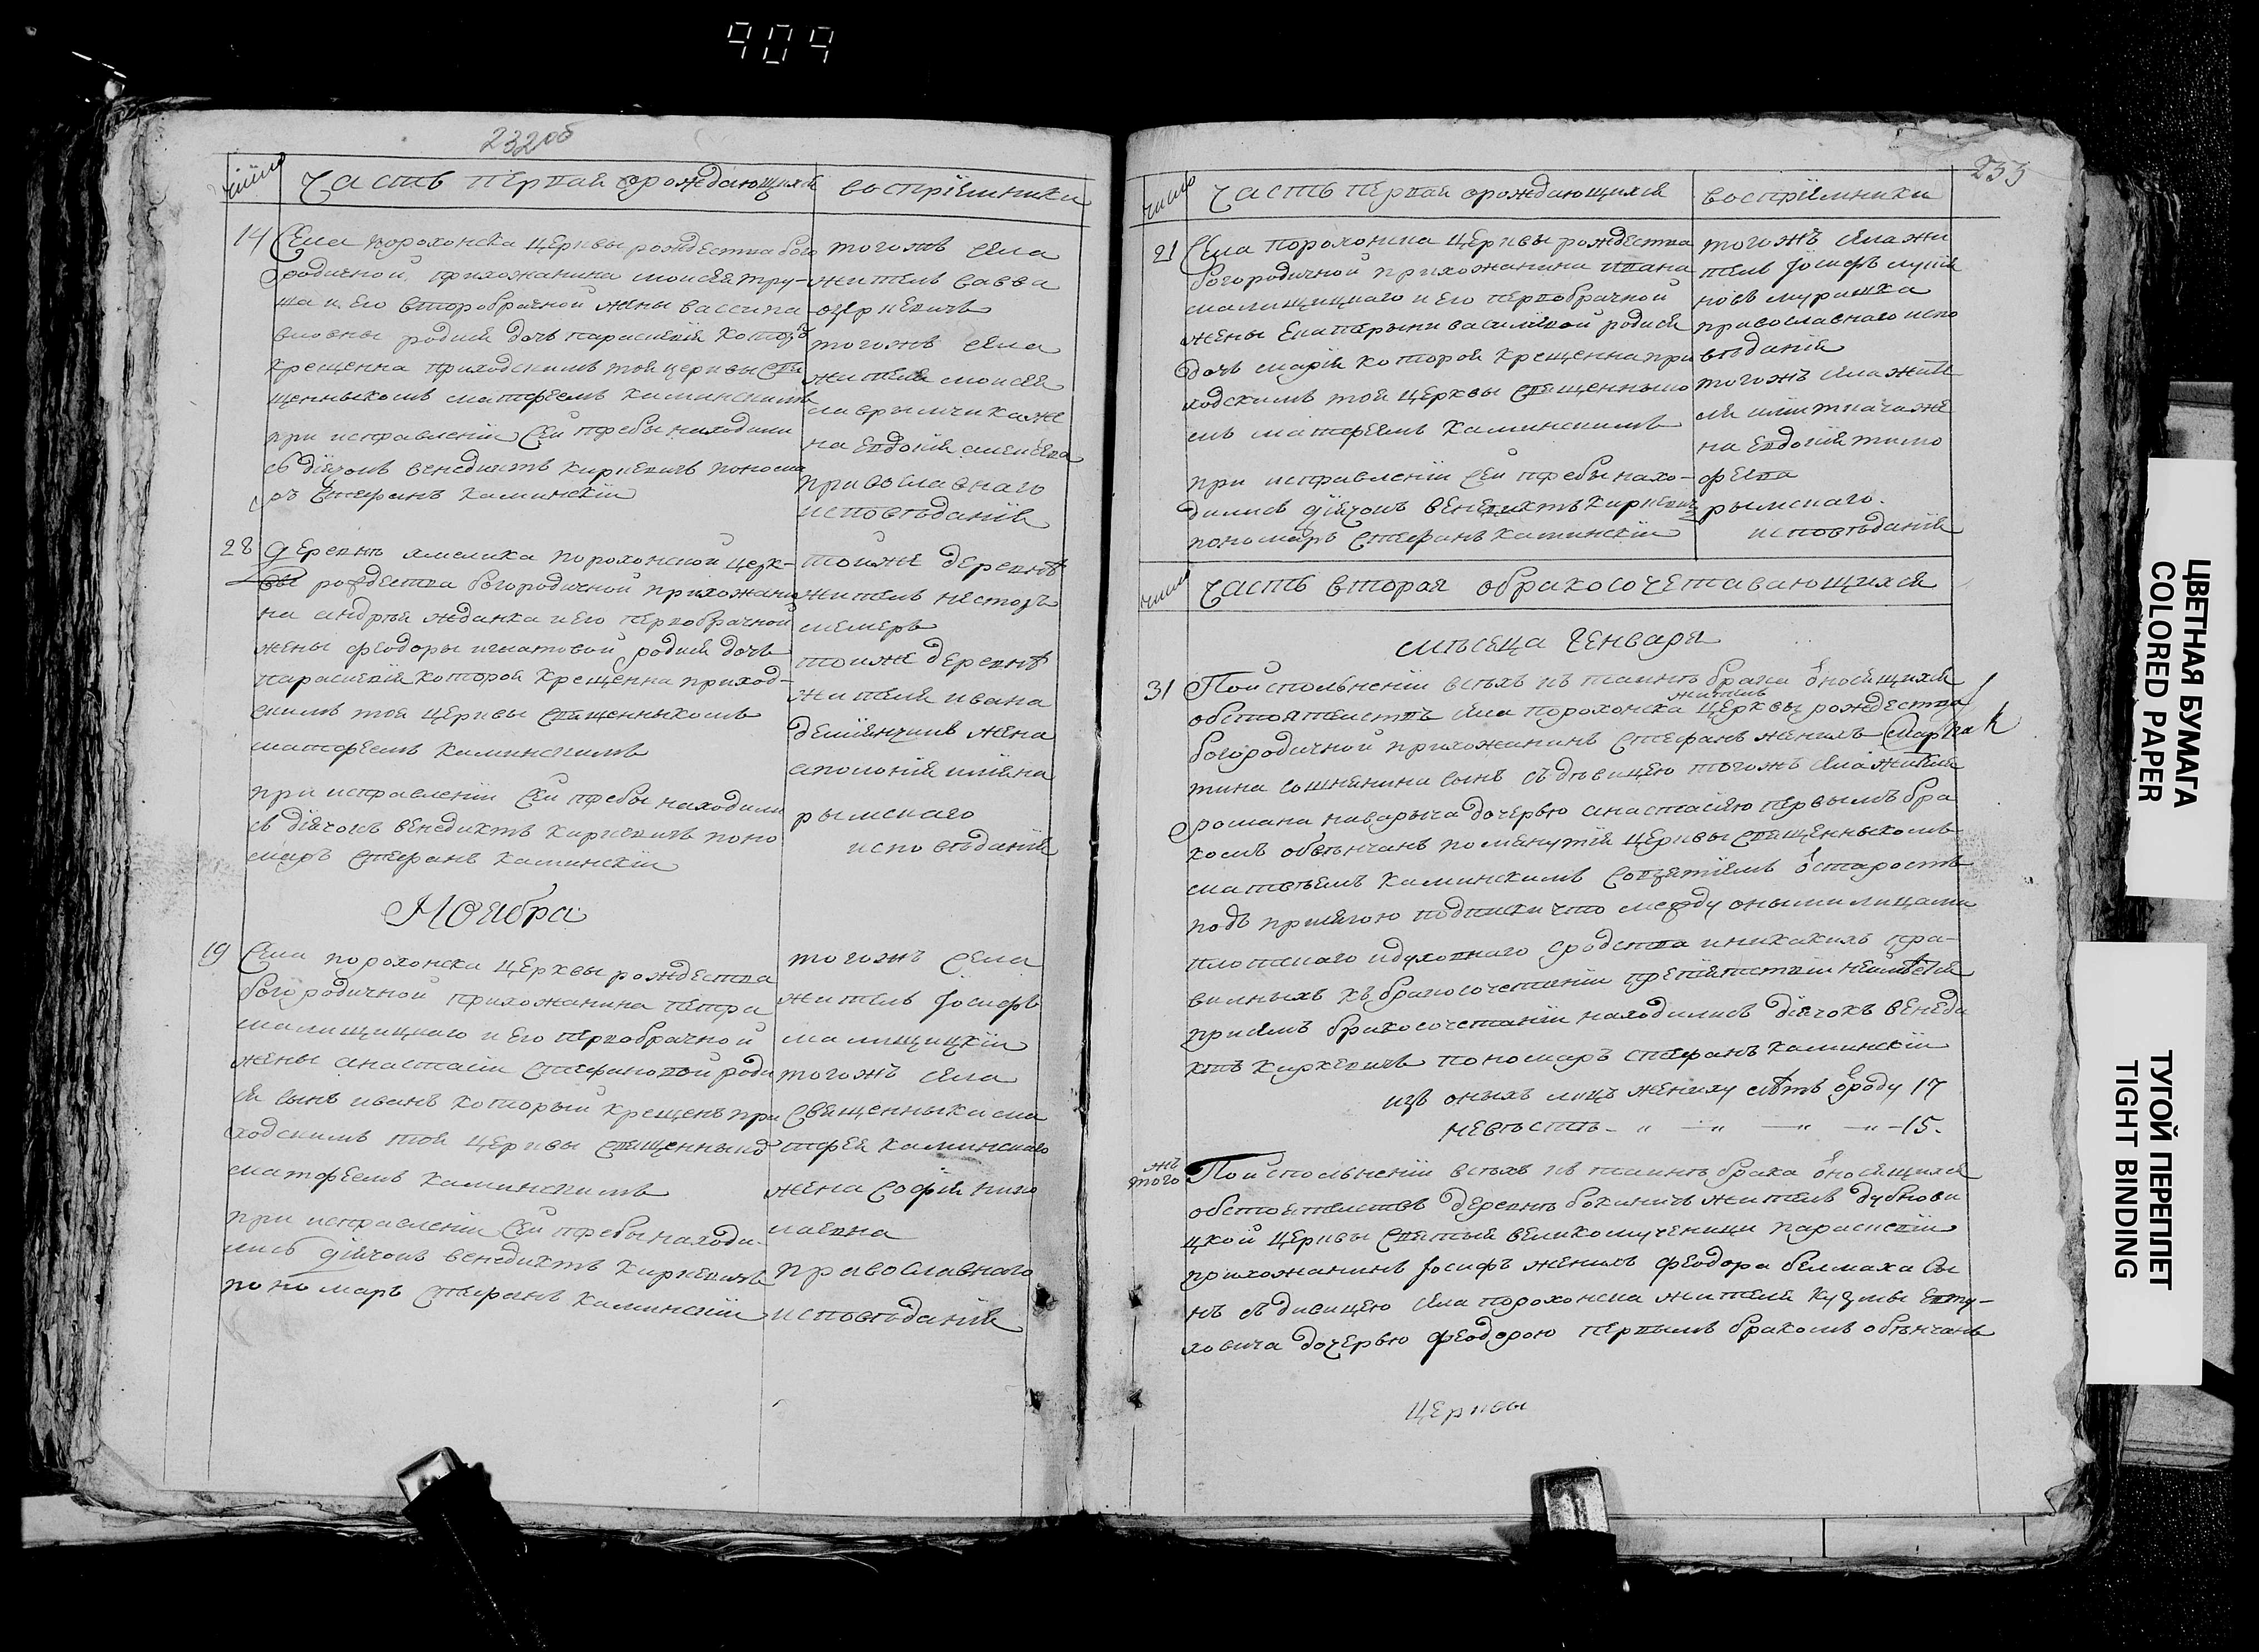 909
232об
число
Часть первая о рождающихся
воспрїемники
14
Села порохонска церквы рождества бого
родичной прихожанина моисея тру-
ша и его второбрачной жены васси
вловны родися дочь параскевїя которая
крещенна приходскимъ той церквы свя
щенныкомъ матфеемъ каминскимъ
при исправленїи сей требы находили
сь дїячокъ венедиктъ киркевичъ понома
ръ стефанъ каминскїи
тогожъ села
житель савва
тогожъ села
жителя моисея
на евдокїя
православнаго
исповѣданїя
28
деревнѣ хмелика порохонской церк-
вы рождества богородичной прихожани
на андрѣя жданка и его первобрачной
жены феодоры игнатовой родися дочь
параскевїя которая крещенна приход-
скимъ той церквы священныкомъ
матфеемъ каминскимъ
при исправленїи сей требы находили
сь дїячокъ венедиктъ киркевичъ поно
маръ стефанъ каминскїи
тоиже деревнѣ
житель несторъ
тоиже деревнѣ
жителя ивана
жена
рымскаго
исповѣданїя
Ноября
19
Села порохонска церквы рождества
богородичной прихожанина петра
малищицкаго и его первобрачной
жены анастасїи стефановой роди
ся сынъ иванъ который крещенъ при
ходскимъ той церквы священныко
матфеемъ каминскимъ
при исправленїи сей требы находи-
лись дїячокъ венедиктъ киркевичъ
пономаръ стефанъ каминскїи
тогожъ села
житель Іосифъ
малищицкїи
тогожъ села
священныка ма
тфея каминскаго
жена софїя нико
лаевна
православнаго
исповѣданїя
233
число
Часть первая о рождающихся
воспрїемники
21
Села порохонска церквы рождества
богородичной прихожанина ивана
малищицкаго и его первобрачной
жены екатерыни василїевой родися
дочь марїя которая крещенна при
ходскимъ той церквы священныко
мъ матфеемъ каминскимъ
при исправленїи сей требы нахо-
дились дїячокъ венедиктъ киркевичъ
пономаръ стефанъ каминскїи
тогожъ села жи
тель Іосифъ
православнаго испо
вѣданїя
тогожъ села жите
ля
на евдокїя тимо
феева
рымскаго.
исповѣданїя
число
Часть вторая о бракосочетавающихся
мѣсеца Генваря
31
По исполненїи всѣхъ къ таинѣ брака относящихся
житель
обстоятелствъ села порохонска церквы рождества
богородичной прихожанинъ стефанъ женихъ мар
тина сынъ съ дѣвицею тогожъ села жителя
романа доч ерью анастасїею первымъ бра
комъ обвѣнчанъ помянутїя церквы священныкомъ
матвѣемъ каминскимъ со взятїемъ о старостъ
подъ присягою подписки что между оными лицами
плотскаго и духовнаго сродства и никакихъ пра-
вилныхъ къ бракосочетанїи препятствїи неимѣется
при семъ бракосочетанїи находились дїячокъ венеди
ктъ киркевичъ пономаръ стефанъ каминскїи
изъ оныхъ лицъ жениху лѣтъ о роду 17
невѣстѣ - " — " — " — -15.
тогожъ
По исполненїи всѣхъ къ таинѣ брака относящихся
обстоятелствъ деревнѣ бокиничъ житель дубнови
цкой церквы святыя великомученици параскевїи
прихожанинъ Іосифъ женихъ феодора белмаха сы
нъ съ дивицею села порохонска жителя кузмы евту-
ховича дочерью феодорою первымъ бракомъ обвѣнчанъ
церквы
ЦВЕТНАЯ БУМАГА
COLORED PAPER
ТУГОЙ ПЕРЕПЛЕТ
TIGHT BINDING